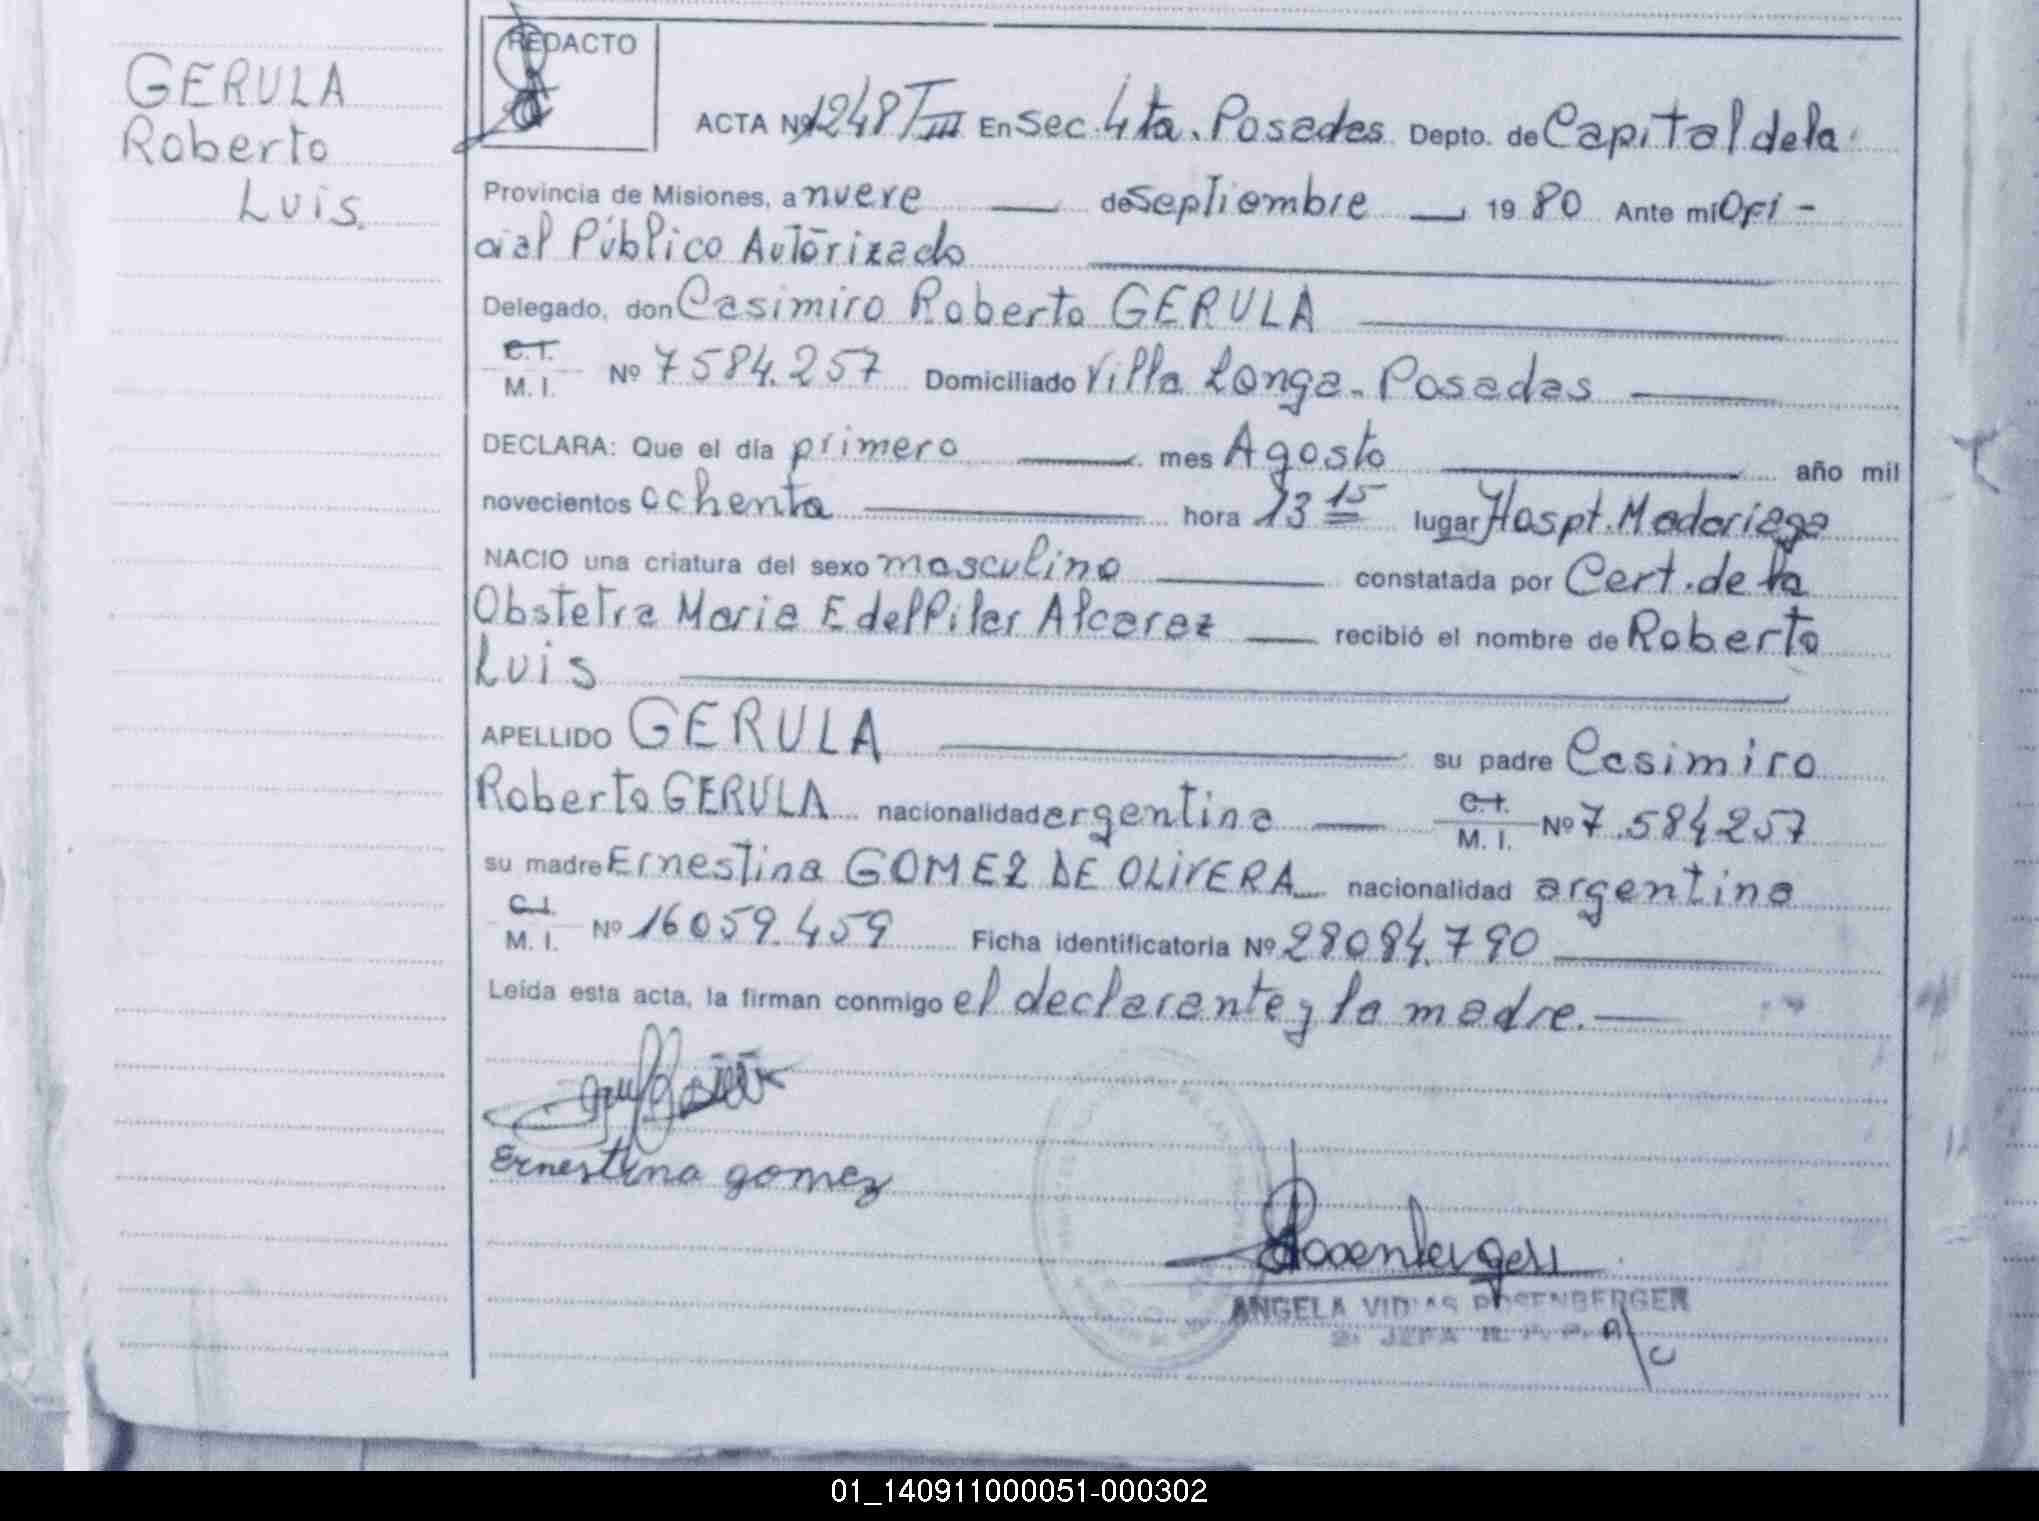 GERULA
Roberto
Luis.
REDACTO
ACTA Nº 1248 TIII En Sec. 4ta. Posadas Depto. de Capital de la
Provincia de Misiones, a nueve de Septiembre 19 80 Ante mi Ofi-
cial Público Autorizado
Delegado, don Casimiro Roberto GERULA
C.I.
M. I. Nº 7584.257 Domiciliado Villa Longa. Posadas
DECLARA: Que el día primero mes Agosto año mil
novecientos ochenta hora 13 15 lugar Hospt. Madariaga
NACIO una criatura del sexo masculino constatada por Cert. de la
Obstetra Maria E del Pilar Alcaraz recibió el nombre de Roberto
Luis
APELLIDO GERULA su padre Casimiro
Roberto GERULA nacionalidad argentina C.I.
M. I. Nº 7.584257
su madre Ernestina GOMEZ DE OLIVERA nacionalidad argentina
C.I.
M. I. Nº 16059.459 Ficha identificatoria Nº 28084.790
Leída esta acta, la firman conmigo el declarante y la madre.
Ernestina gomez
Rosenberger
ANGELA VIDIAS ROSENBERGER
2ª JEFA R. P. P. A/C
01_140911000051-000302